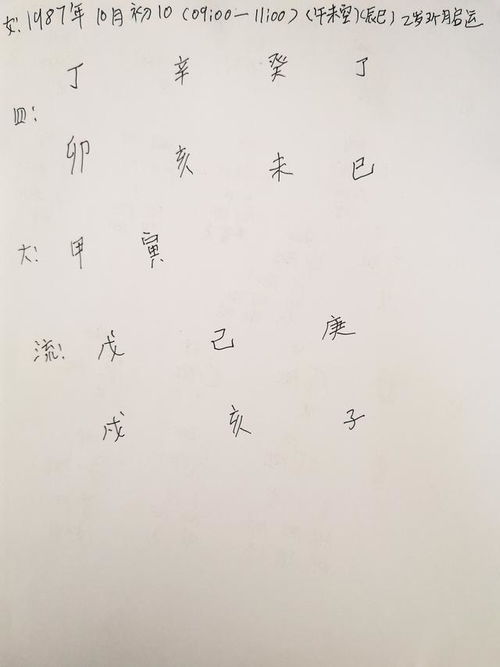 女:1987年10月初10(09:00—11:00)(午未空)(辰巳)2岁3个月启运
丁 辛 癸 丁
四:
卯 亥 未 巳
大:甲 寅
流:戊 己 庚
戌 亥 子